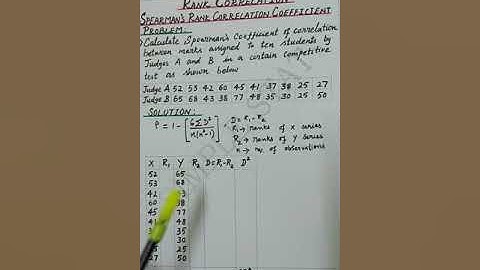 RANK CORRELATION
SPEARMAN'S RANK CORRELATION COEFFICIENT
PROBLEM:
Calculate Spearman's coefficient of correlation
between marks assigned to ten students by
Judges A and B in a certain competitive
test as shown below
Judge A 52 53 42 60 45 41 37 38 25 27
Judge B 65 68 43 38 77 48 35 30 25 50
SOLUTION:
P = 1 - [6ΣD²/n(n²-1)] D = R₁ - R₂
R₁ → ranks of x series
R₂ → ranks of y series
n → no. of observations
X R₁ Y R₂ D=R₁-R₂ D²
52 65
53 68
42
60 38
45 77
41 48
35
30
25
27 50